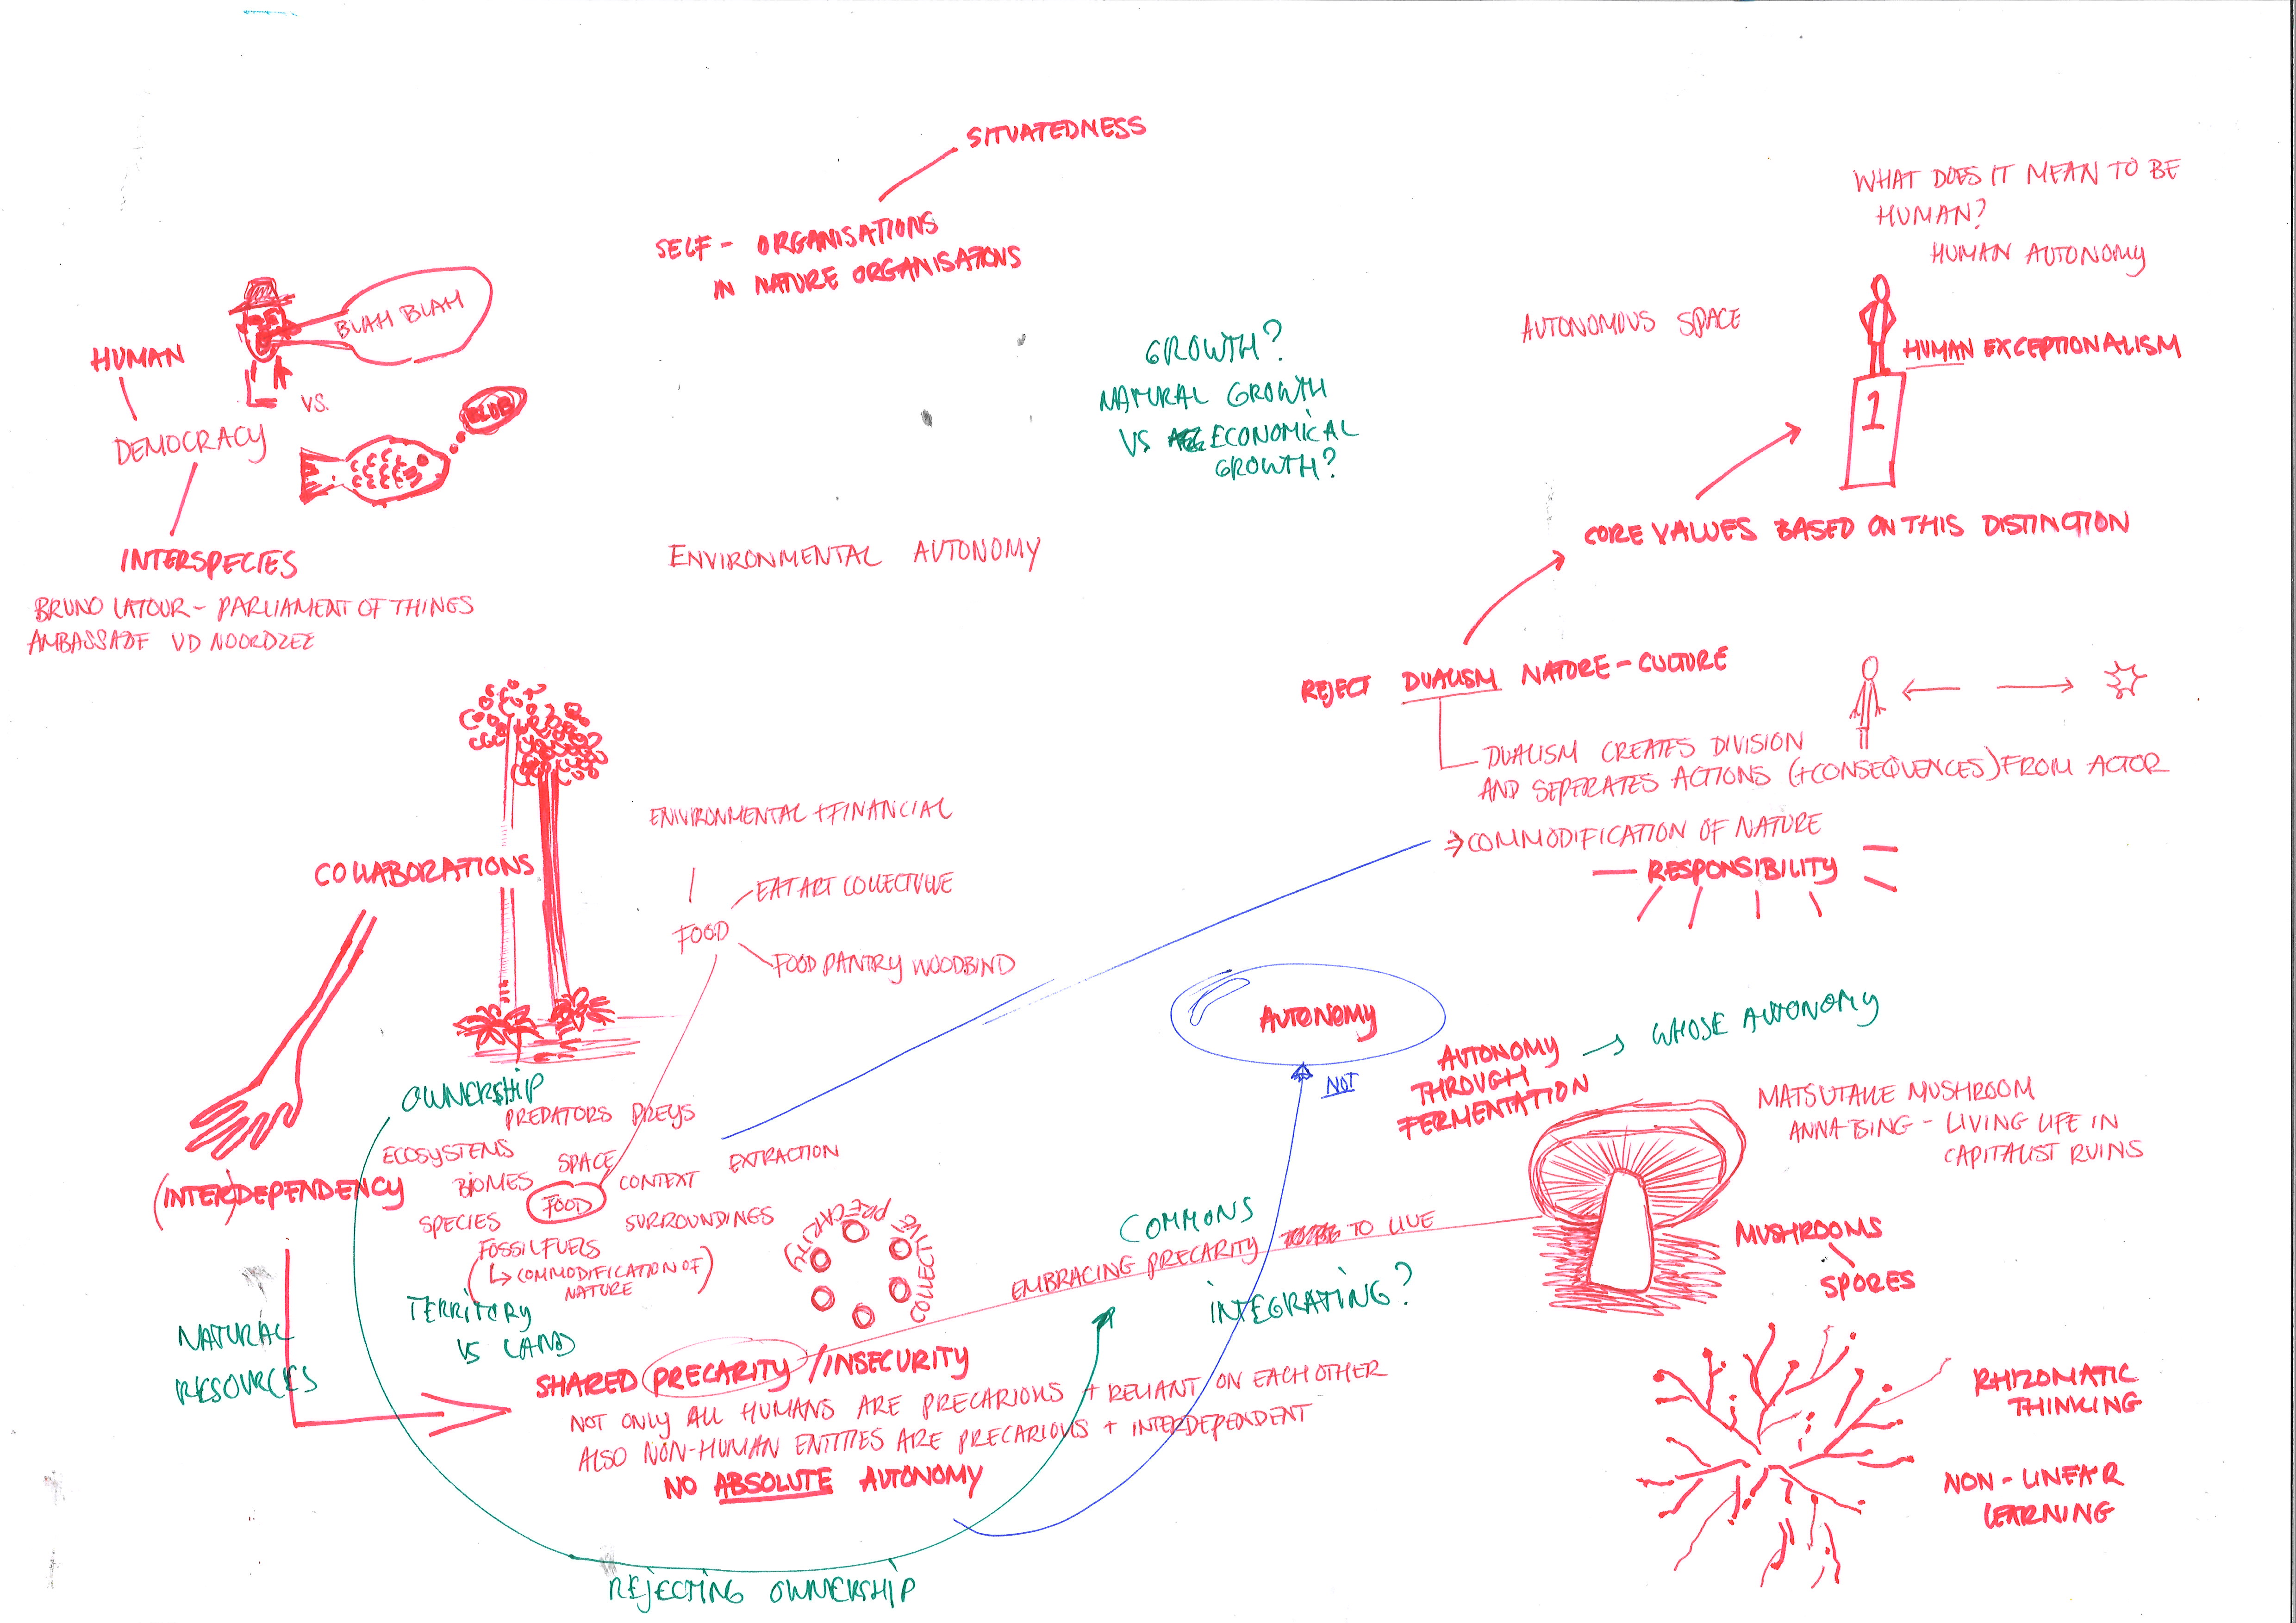 SITUATEDNESS
SELF - ORGANISATIONS
IN NATURE ORGANISATIONS
WHAT DOES IT MEAN TO BE
HUMAN?
HUMAN AUTONOMY
AUTONOMOUS SPACE
HUMAN EXCEPTIONALISM
1
BLAH BLAH
HUMAN
VS.
BLUB
DEMOCRACY
INTERSPECIES
BRUNO LATOUR - PARLIAMENT OF THINGS
AMBASSADE VD NOORDZEE
GROWTH?
NATURAL GROWTH
VS ECONOMICAL
GROWTH?
ENVIRONMENTAL AUTONOMY
CORE VALUES BASED ON THIS DISTINCTION
REJECT DUALISM NATURE - CULTURE
DUALISM CREATES DIVISION
AND SEPERATES ACTIONS (+CONSEQUENCES) FROM ACTOR
⇒ COMMODIFICATION OF NATURE
RESPONSIBILITY
COLLABORATIONS
ENVIRONMENTAL + FINANCIAL
EAT ART COLLECTIVE
FOOD
FOOD PANTRY WOODBIND
AUTONOMY
NOT
AUTONOMY
THROUGH
FERMENTATION
WHOSE AUTONOMY
MATSUTAKE MUSHROOM
ANNA TSING - LIVING LIFE IN
CAPITALIST RUINS
MUSHROOMS
SPORES
RHIZOMATIC
THINKING
NON - LINEAR
LEARNING
OWNERSHIP
PREDATORS PREYS
ECOSYSTEMS
SPACE
EXTRACTION
BIOMES
CONTEXT
(INTER)DEPENDENCY
FOOD
SPECIES
SURROUNDINGS
FOSSIL FUELS
(↳ COMMODIFICATION OF
NATURE)
TERRITORY
VS LAND
NATURAL
RESOURCES
PRECARITY
COLLECTIVE
COMMONS
EMBRACING PRECARITY TO LIVE
INTEGRATING?
SHARED PRECARITY / INSECURITY
NOT ONLY ALL HUMANS ARE PRECARIOUS + RELIANT ON EACH OTHER
ALSO NON-HUMAN ENTITIES ARE PRECARIOUS + INTERDEPENDENT
NO ABSOLUTE AUTONOMY
REJECTING OWNERSHIP